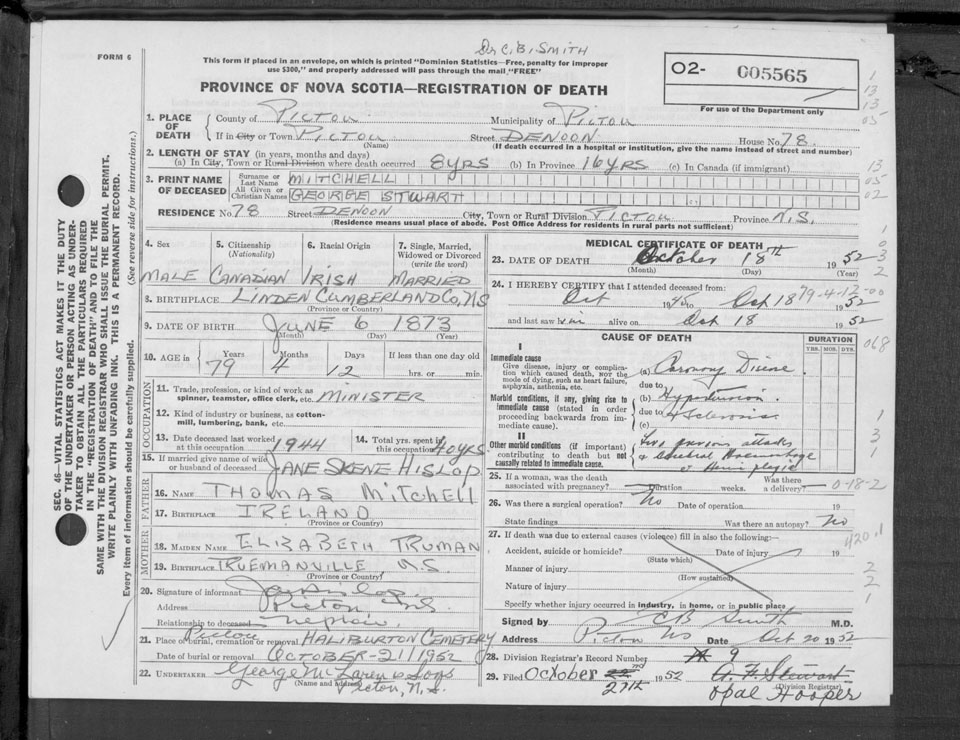 Dr C. B. SMITH
FORM 6
This form if placed in an envelope, on which is printed "Dominion Statistics—Free, penalty for improper
use $300," and properly addressed will pass through the mail "FREE"
O2- 005565
For use of the Department only
PROVINCE OF NOVA SCOTIA—REGISTRATION OF DEATH
1. PLACE OF DEATH
County of PICTOU Municipality of PICTOU
If in City or Town PICTOU Street DENOON House No. 78
(Name) (If death occurred in a hospital or institution, give the name instead of street and number)
2. LENGTH OF STAY (in years, months and days)
(a) In City, Town or Rural Division where death occurred 8 YRS (b) In Province 16 YRS (c) In Canada (if immigrant)
3. PRINT NAME OF DECEASED
Surname or Last Name MITCHELL
All Given or Christian Names GEORGE STWART
RESIDENCE No. 78 Street DENOON City, Town or Rural Division PICTOU Province N.S.
(Residence means usual place of abode. Post Office Address for residents in rural parts not sufficient)
4. Sex 5. Citizenship (Nationality) 6. Racial Origin 7. Single, Married, Widowed or Divorced (write the word)
MALE CANADIAN IRISH MARRIED
8. BIRTHPLACE LINDEN CUMBERLAND Co, N.S
(Province or Country)
9. DATE OF BIRTH JUNE 6 1873
(Month) (Day) (Year)
10. AGE in Years Months Days If less than one day old
79 4 12 hrs. or min.
OCCUPATION
11. Trade, profession, or kind of work as
spinner, teamster, office clerk, etc. MINISTER
12. Kind of industry or business, as cotton-
mill, lumbering, bank, etc.
13. Date deceased last worked at this occupation 1944 14. Total yrs. spent in this occupation 40 yrs.
15. If married give name of wife
or husband of deceased JANE SKENE HISLOP
FATHER
16. NAME THOMAS MITCHELL
17. BIRTHPLACE IRELAND
(Province or Country)
MOTHER
18. MAIDEN NAME ELIZABETH TRUMAN
19. BIRTHPLACE TRUEMANVILLE, N.S.
(Province or Country)
20. Signature of informant
Address Pictou N.S.
Relationship to deceased
21. Place of burial, cremation or removal Pictou HALIBURTON CEMETERY
Date of burial or removal OCTOBER-21/1952
22. UNDERTAKER George McLaren & Sons
(Name and address) Pictou, N.S.
MEDICAL CERTIFICATE OF DEATH
23. DATE OF DEATH October 18th 1952
(Month) (Day) (Year)
24. I HEREBY CERTIFY that I attended deceased from:
Oct 1945 to Oct 18 1952
79-4-12-00
and last saw him alive on Oct 18 1952
CAUSE OF DEATH DURATION
YRS. MOS. DYS.
I
Immediate cause
Give disease, injury or complication which caused death, not the mode of dying, such as heart failure, asphyxia, asthenia, etc.
(a) Coronary Disease
due to
Morbid conditions, if any, giving rise to immediate cause (stated in order proceeding backwards from immediate cause).
(b) Hypertension
due to
(c) Sclerosis
II
Other morbid conditions (if important) contributing to death but not causally related to immediate cause.
Two previous attacks
Cerebral Haemorrhage
& Hemiplegia
25. If a woman, was the death
associated with pregnancy? Duration weeks. Was there a delivery?
0-18-2
26. Was there a surgical operation? No Date of operation 19
State findings Was there an autopsy? No
27. If death was due to external causes (violence) fill in also the following:—
420.1
Accident, suicide or homicide? Date of injury 19
(State which)
Manner of injury
(How sustained)
Nature of injury
Specify whether injury occurred in industry, in home, or in public place
Signed by C B Smith M.D.
Address Pictou NS Date Oct 20 1952
28. Division Registrar's Record Number 9
29. Filed October 27th 1952 A. F. Stewart
(Division Registrar)
Opal Hooper
SEC. 46—VITAL STATISTICS ACT MAKES IT THE DUTY
OF THE UNDERTAKER OR PERSON ACTING AS UNDER-
TAKER TO OBTAIN ALL THE PARTICULARS REQUIRED
IN THE "REGISTRATION OF DEATH" AND TO FILE THE
SAME WITH THE DIVISION REGISTRAR WHO SHALL ISSUE THE BURIAL PERMIT.
WRITE PLAINLY WITH UNFADING INK. THIS IS A PERMANENT RECORD.
Every item of information should be carefully supplied. (See reverse side for instructions.)
1
13
13
05
13
05
02
1
0
3
2
068
1
3
1
2
2
1